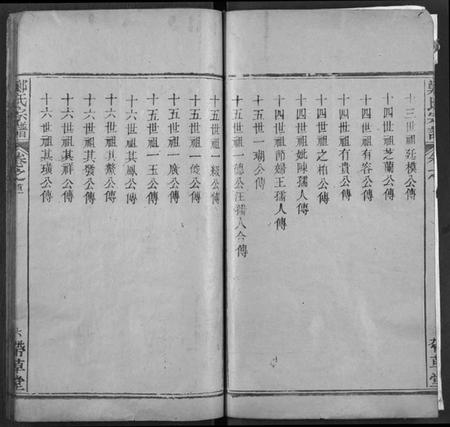 鄭氏宗譜
帶草堂
十三世祖廷模公傳
十四世祖芝蘭公傳
十四世祖有容公傳
十四世祖有貴公傳
十四世祖之柏公傳
十四世祖妣陳孺人傳
十四世祖節婦王孺人傳
十五世祖一瑚公傳
十五世祖一德公汪孺人合傳
十五世祖一
公傳
十五世祖一
公傳
十五世祖一廣公傳
十五世祖一玉公傳
十六世祖其鳳公傳
十六世祖其鰲公傳
十六世祖其發公傳
十六世祖其祥公傳
十六世祖其璜公傳
鄭氏宗譜
卷之首
六
帶草堂